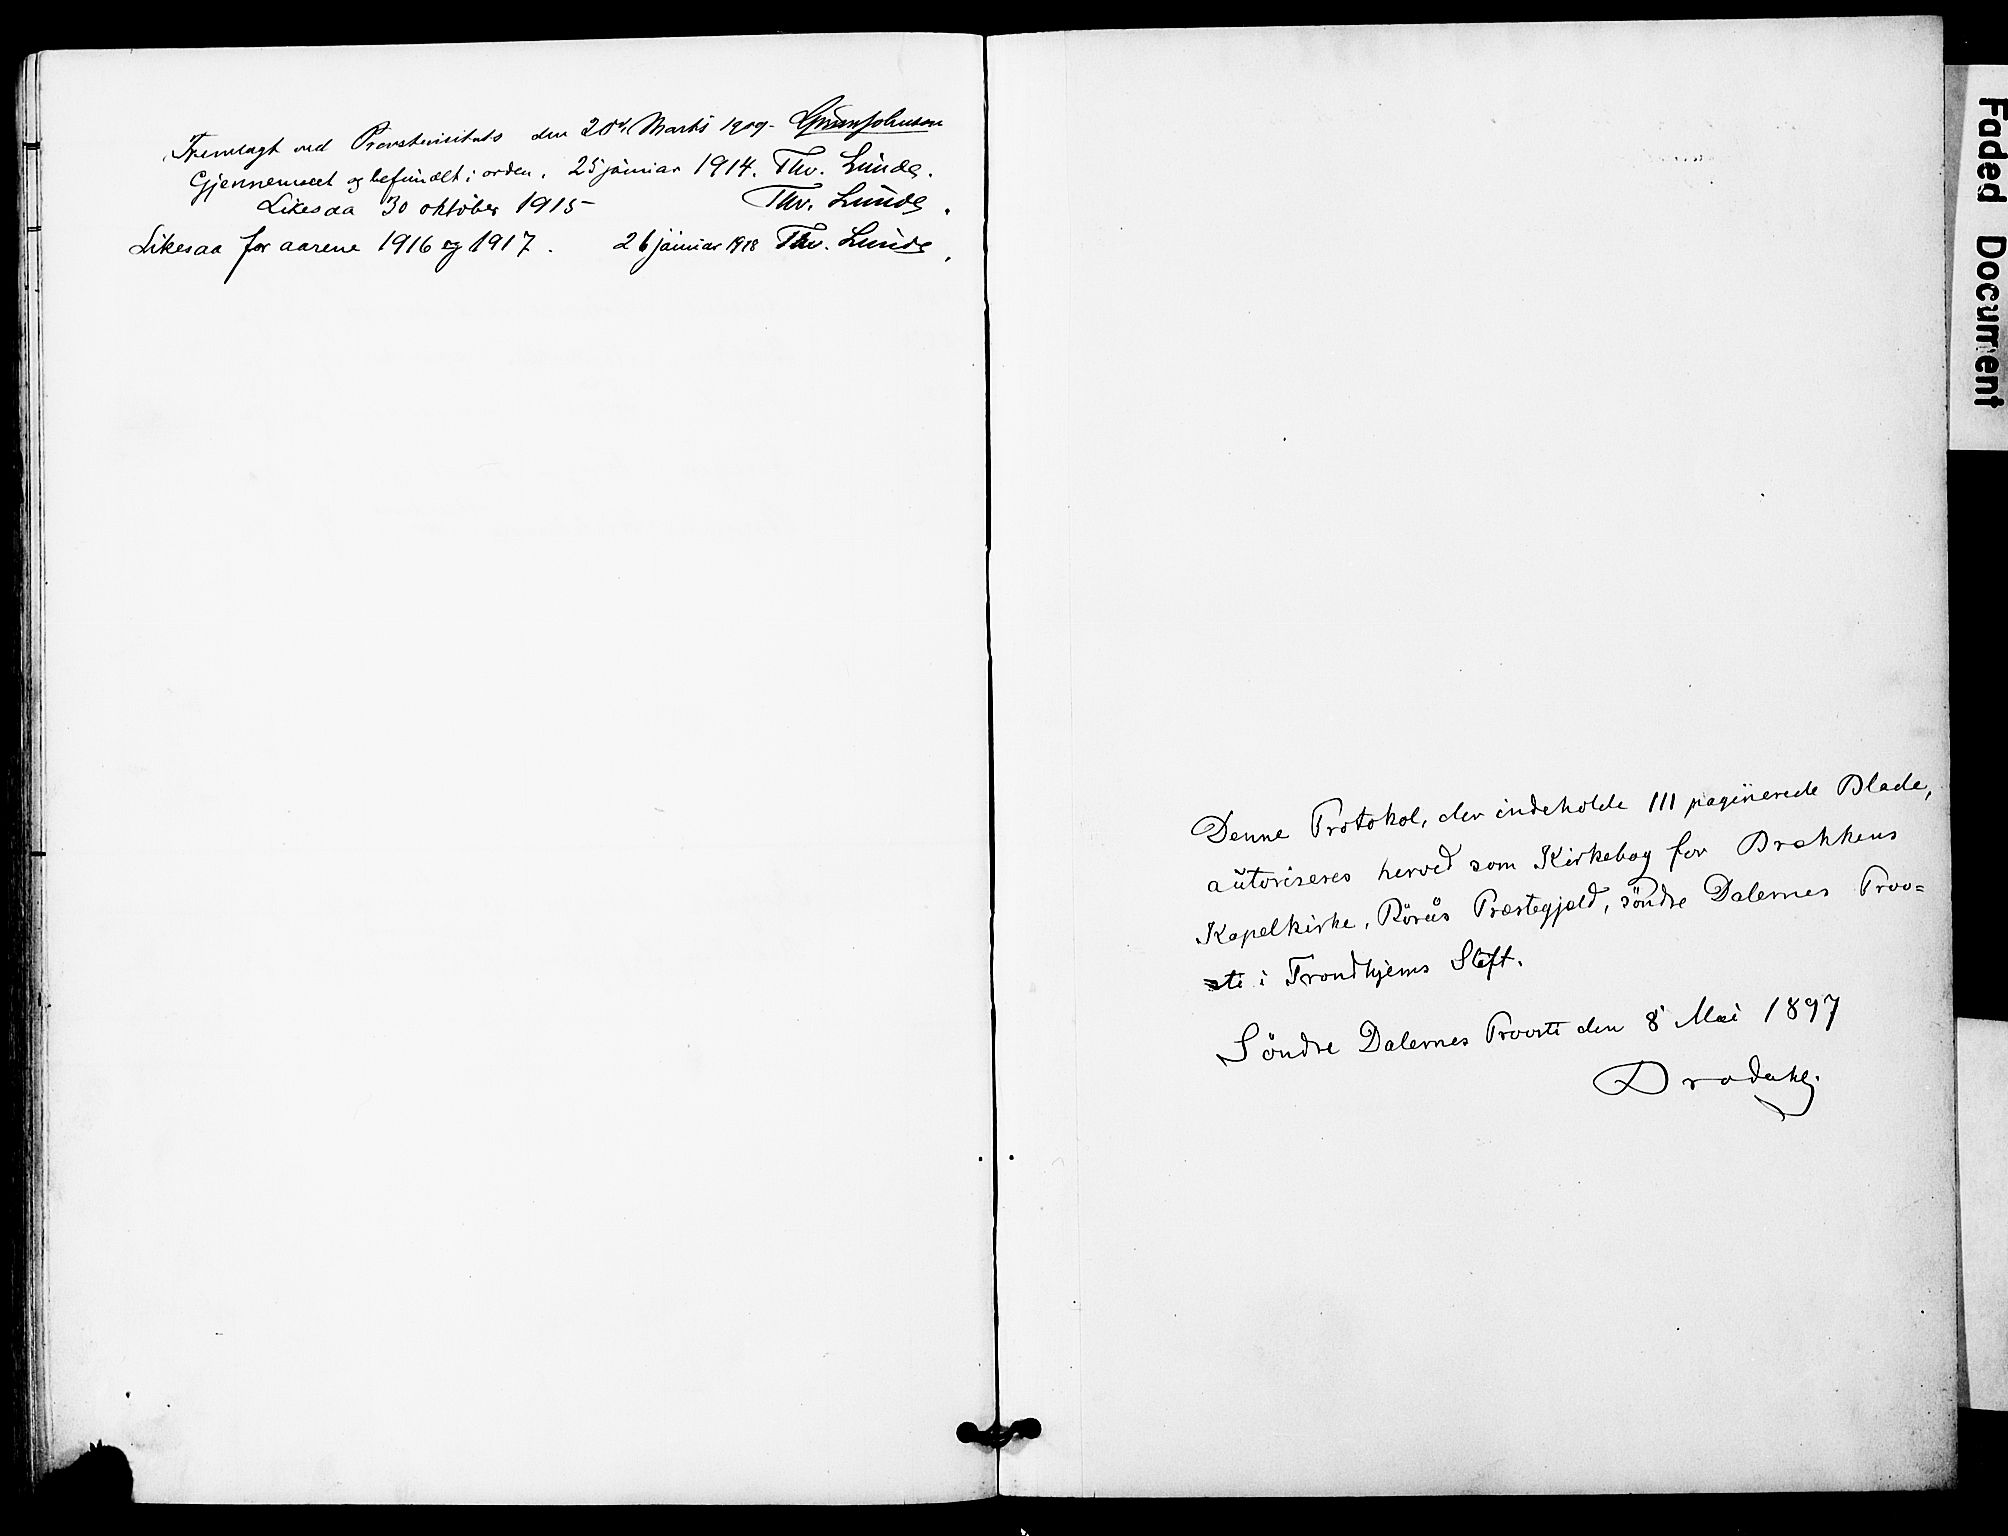 Fremlagt ved Provstevisitats den 20de Marts 1909.
Gjennemseet og befundet i orden. 25 januar 1914. Thv. Lunde.
Likesaa 30 oktober 1915 Thv. Lunde.
Likesaa for aarene 1916 og 1917. 26 januar 1918 Thv. Lunde.
Denne Protokol, der indeholde 111 paginerede Blade,
autoriseres herved som Kirkebog for Brækkens
Kapelkirke, Röraas Præstegjeld, söndre Dalernes Prov=
sti i Trondhjems Stift.
Söndre Dalernes Provsti den 8 Mai 1897
Faded Document